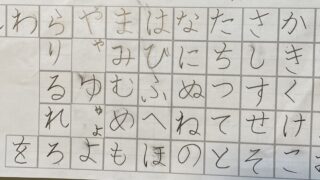 かきくけこ
さしすせそ
たちつてと
なにぬねの
はひふへほ
まみむめも
やゃゆゅょよ
らりるれろ
わを